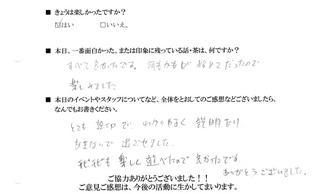 ■ きょうは楽しかったですか？
☑はい □いいえ、
■ 本日、一番面白かった、または印象に残っている話・茶は、何ですか？
すべて良かったです。
楽しみました
■ 本日のイベントやスタッフについてなど、全体をとおしてのご感想などございましたら、
なんでもお書きください。
とても 親切で わかりやすく 説明あり
過ごせました。
楽しく 遊べたので 良かったです
ありがとうございました。
ご協力ありがとうございました！！
ご意見ご感想は、今後の活動に生かしてまいります。